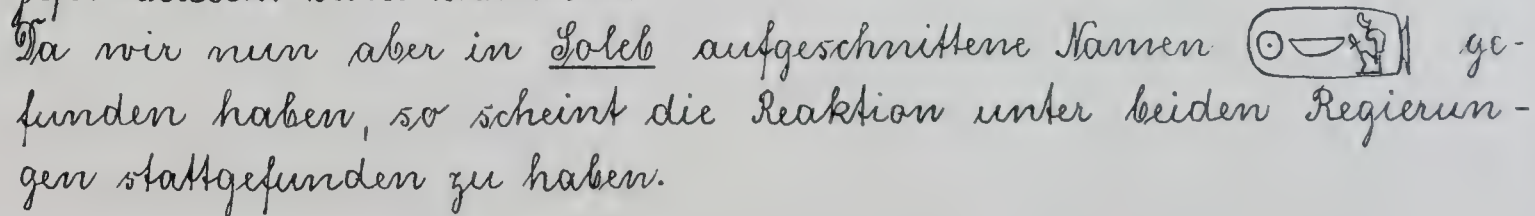 Da wir nun aber in Soleb aufgeschnittene Namen 𓍹𓇳𓎟𓁦𓍺 ge-
funden haben, so scheint die Reaktion unter beiden Regierun-
gen stattgefunden zu haben.